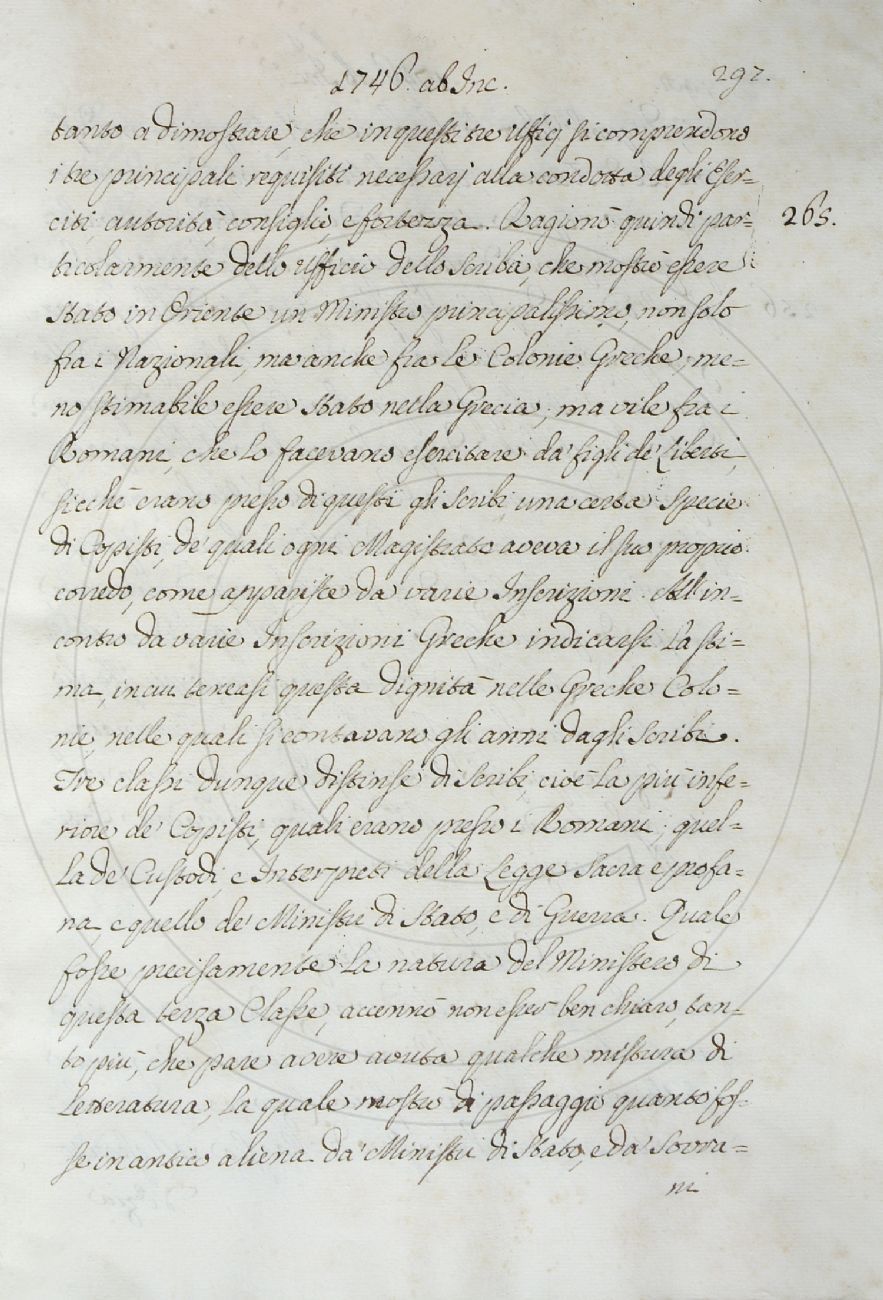 1746. ab Inc.
297.
tanto a dimostrare, che in questi tre Uffizj si comprendono
i tre principali requisiti necessarj alla condotta degli Eser-
citi, autorità, consiglio, e fortezza. Ragionò quindi par-
265.
ticolarmente dello Ufficio dello Scriba, che mostrò essere
stato in Oriente un Ministro principalissimo, non solo
fra i Nazionali, ma anche fra le Colonie Greche, me-
no stimabile essere stato nella Grecia; ma vile fra i
Romani, che lo facevano esercitare da' figli de' Liberti,
sicchè erano presso di questi gli Scribi una certa specie
di Copisti, de' quali ogni Magistrato aveva il suo proprio
corredo, come apparisce da varie Inscrizioni. All'in-
contro da varie Inscrizioni Greche indicarsi la sti-
ma, in cui teneasi questa dignità nelle Greche Colo-
nie, nelle quali si contavano gli anni dagli Scribi.
Tre classi dunque distinse di Scribi, cioè la più infe-
riore de' Copisti, quali erano presso i Romani; quel-
la de' Custodi, e Interpreti della Legge Sacra e profa-
na e quello de' Ministri di Stato, e di Guerra. Quale
fosse precisamente la natura del Ministero di
questa terza Classe, accennò non esser ben chiaro, tan-
to più, che pare avere avuta qualche mistura di
Letteratura, la quale mostrò di passaggio quanto fos-
se in antico aliena da' Ministri di Stato, e da' Sovra-
ni